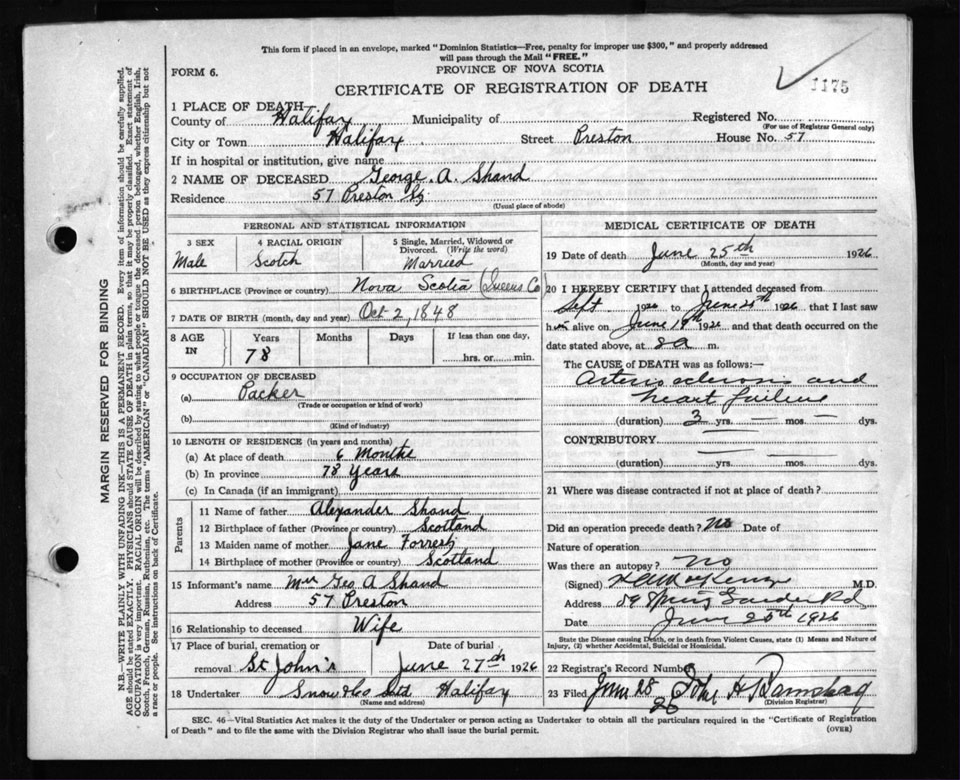 This form if placed in an envelope, marked "Dominion Statistics—Free, penalty for improper use $300," and properly addressed
will pass through the Mail "FREE."
PROVINCE OF NOVA SCOTIA
FORM 6.
1175
CERTIFICATE OF REGISTRATION OF DEATH
1 PLACE OF DEATH—
County of Halifax Municipality of Registered No.
(For use of Registrar General only)
City or Town Halifax Street Preston House No. 57
If in hospital or institution, give name
2 NAME OF DECEASED George. A. Shand
Residence 57 Preston St
(Usual place of abode)
PERSONAL AND STATISTICAL INFORMATION
3 SEX
Male
4 RACIAL ORIGIN
Scotch
5 Single, Married, Widowed or
Divorced. (Write the word)
Married
6 BIRTHPLACE (Province or country) Nova Scotia (Queens Co)
7 DATE OF BIRTH (month, day and year) Oct 2, 1848
8 AGE IN
Years Months Days If less than one day,
78 hrs. or min.
9 OCCUPATION OF DECEASED
(a) Packer
(Trade or occupation or kind of work)
(b)
(Kind of industry)
10 LENGTH OF RESIDENCE (in years and months)
(a) At place of death 6 Months
(b) In province 78 Years
(c) In Canada (if an immigrant)
Parents
11 Name of father Alexander Shand
12 Birthplace of father (Province or country) Scotland
13 Maiden name of mother Jane Forrest
14 Birthplace of mother (Province or country) Scotland
15 Informant's name Mrs Geo A Shand
Address 57 Preston
16 Relationship to deceased Wife
17 Place of burial, cremation or Date of burial
removal St John's June 27th 1926
18 Undertaker Snow & Co Ltd Halifax
(Name and address)
MEDICAL CERTIFICATE OF DEATH
19 Date of death June 25th 1926
(Month, day and year)
20 I HEREBY CERTIFY that I attended deceased from
Sept 1926 to June 25th 1926 that I last saw
him alive on June 19th 1926 and that death occurred on the
date stated above, at 8 a m.
The CAUSE OF DEATH was as follows:—
Arterio sclerosis and
heart failure
(duration) 3 yrs. — mos. — dys.
CONTRIBUTORY
(duration) yrs. mos. dys.
21 Where was disease contracted if not at place of death?
Did an operation precede death? No Date of
Nature of operation
Was there an autopsy? No
(Signed) M.D.
Address 59 Spring Garden Rd
Date June 25th 1926
State the Disease causing Death, or in death from Violent Causes, state (1) Means and Nature of
Injury, (2) whether Accidental, Suicidal or Homicidal.
22 Registrar's Record Number
23 Filed June 28 26 John H
(Division Registrar)
SEC. 46—Vital Statistics Act makes it the duty of the Undertaker or person acting as Undertaker to obtain all the particulars required in the "Certificate of Registration
of Death" and to file the same with the Division Registrar who shall issue the burial permit.
(OVER)
MARGIN RESERVED FOR BINDING
N.B.—WRITE PLAINLY WITH UNFADING INK—THIS IS A PERMANENT RECORD. Every item of information should be carefully supplied.
AGE should be stated EXACTLY. PHYSICIANS should STATE CAUSE OF DEATH in plain terms, so that it may be properly classified. Exact statement of
OCCUPATION is very important. RACIAL ORIGIN will be described by stating to what people or tongue the deceased person belonged, whether English, Irish,
Scotch, French, German, Russian, Ruthenian, etc. The terms "AMERICAN" or "CANADIAN" SHOULD NOT BE USED as they express citizenship but not
a race or people. See instructions on back of Certificate.